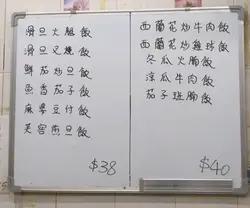 滑旦火腿飯
滑旦叉燒飯
鮮茄炒旦飯
魚香茄子飯
麻婆豆付飯
芙蓉煎旦飯
$38
西蘭花炒牛肉飯
西蘭花炒雞球飯
冬瓜火腩飯
涼瓜牛肉飯
茄子斑腩飯
$40